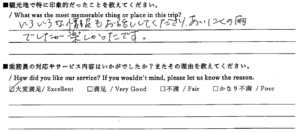 ■観光地で特に印象的だったことを教えてください。
/ What was the most memorable thing or place in this trip?
いろいろな情報もお話をしてくださり、あいにくの雨
でしたが楽しかったです。
■乗務員の対応やサービス内容はいかがでしたか?またその理由を教えてください。
/ How did you like our service? If you wouldn't mind, please let us know the reason.
☑大変満足/ Excellent □満足 / Very Good □不満 / Fair □かなり不満 / Poor